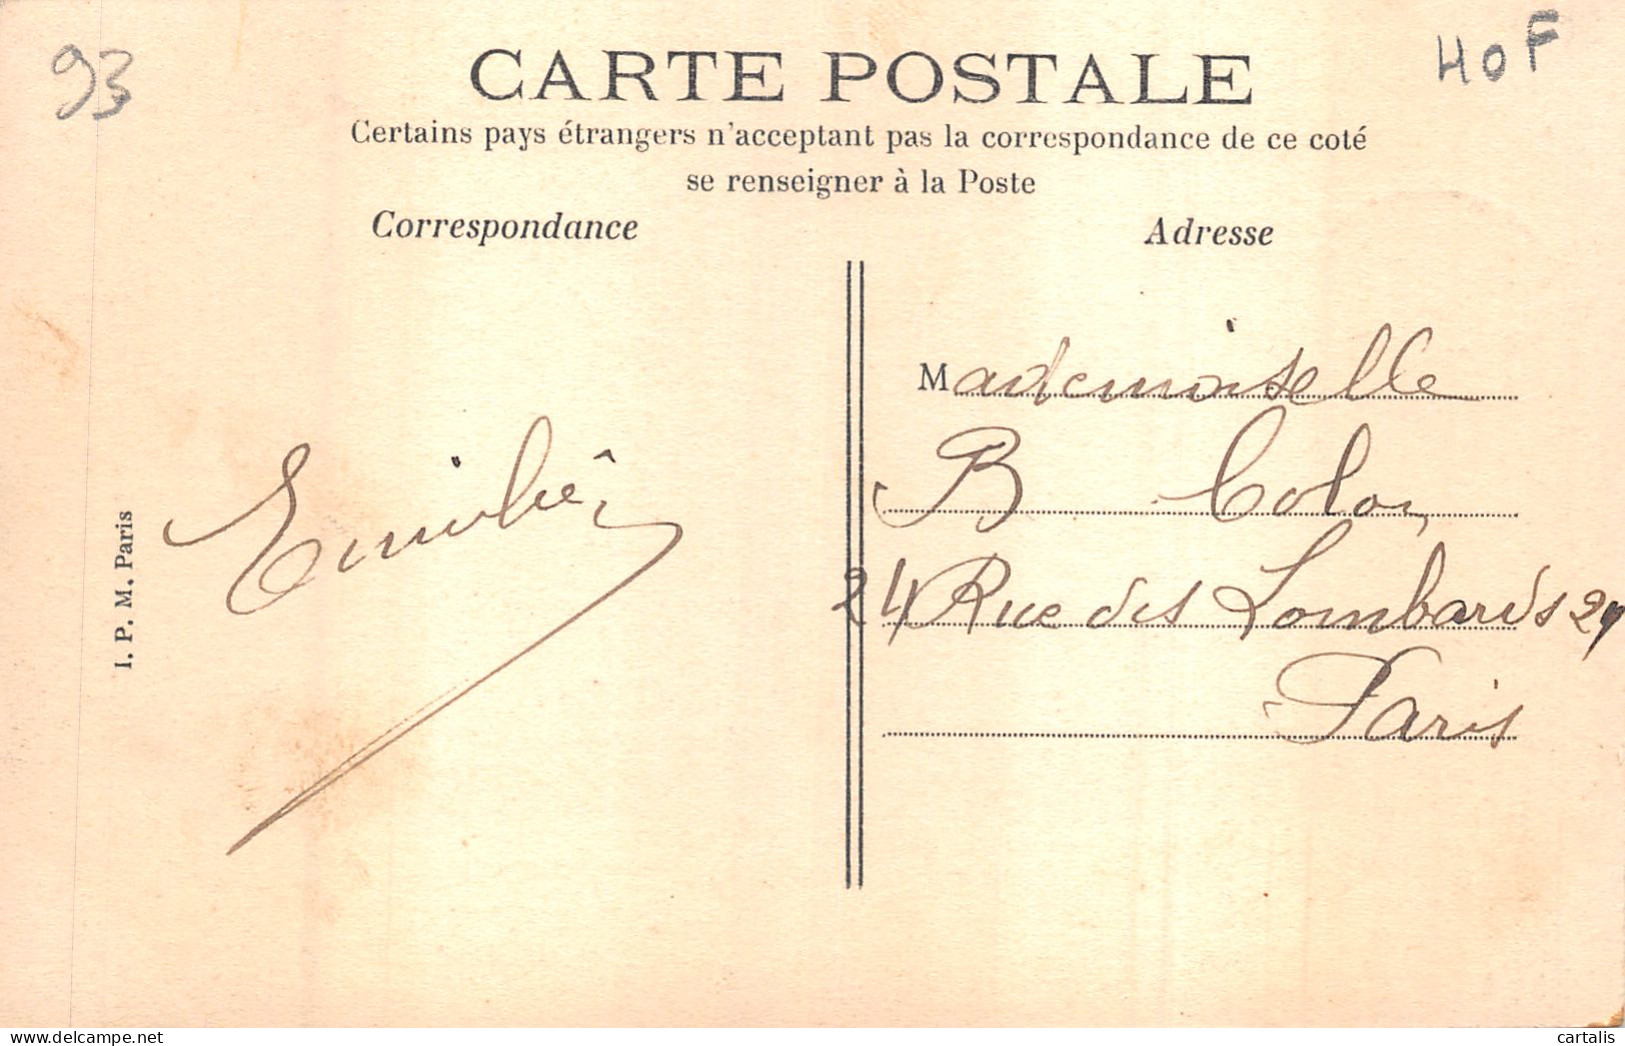 93
HOF
CARTE POSTALE
Certains pays étrangers n'acceptant pas la correspondance de ce coté
se renseigner à la Poste
Correspondance
Adresse
Mademoiselle
B Colon
24 Rue des Lombards 24
Paris
I. P. M. Paris
delcampe.net
cartalis